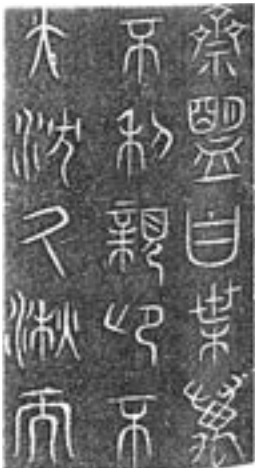 齋盟曰枼萬
不利親卬不
大沈久湫而